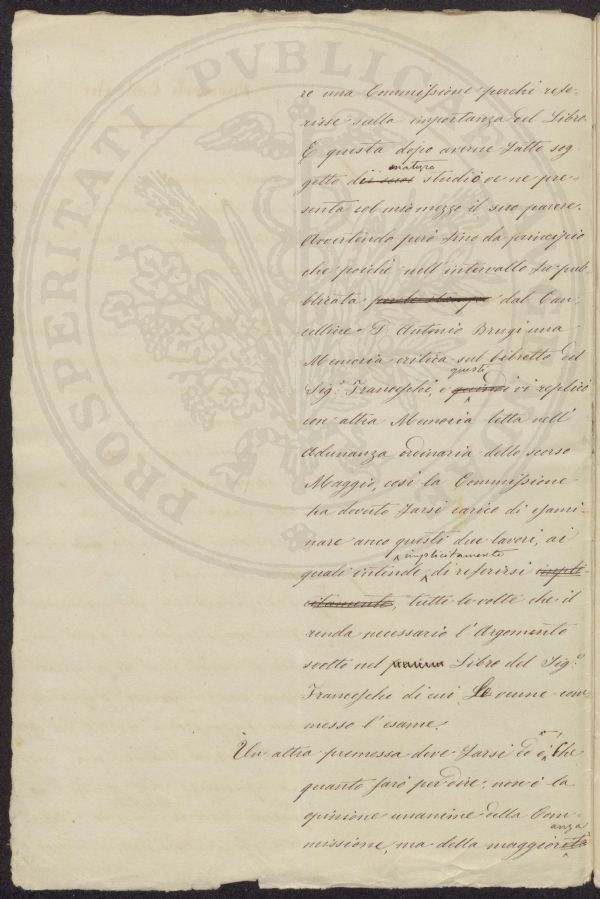 PROSPERITATI PVBLICAE
re una Commissione perchè rife-
risse sulla importanza del Libro.
E questa dopo averne fatto sog-
maturo
getto dei suoi studio ve ne pre-
senta col mio mezzo il suo parere.
Avvertendo però fino da principio
che poichè nell'intervallo fu pub-
blicata per le stampe dal Can-
celliere D. Antonio Brugi una
Memoria critica sul Libretto del
questi
Sig.r Franceschi, e quindi vi replicò
con altra Memoria letta nell'
Adunanza ordinaria dello scorso
Maggio, così la Commissione
ha dovuto farsi carico di esami-
nare anco questi due lavori, ai
implicitamente
quali intende di referirsi impli-
citamente, tutte le volte che il
renda necessario l'Argomento
svolto nel Libro del Sig.r
Franceschi di cui Le venne com-
messo l'esame.
Un altra premessa deve farsi ed è, Che
quanto sarò per dire, non è la
opinione unanime della Com-
anza
missione, ma della maggiorità